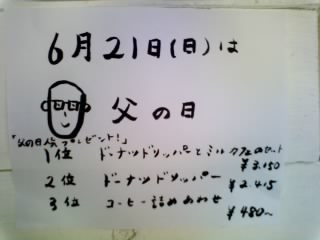 6月21日(日)は
父の日
「父の日にプレゼント!」
1位 ドーナツドリッパーとミルクカフェのセット
¥3.150
2位 ドーナツドリッパー
¥2.415
3位 コーヒー詰めあわせ
¥480〜